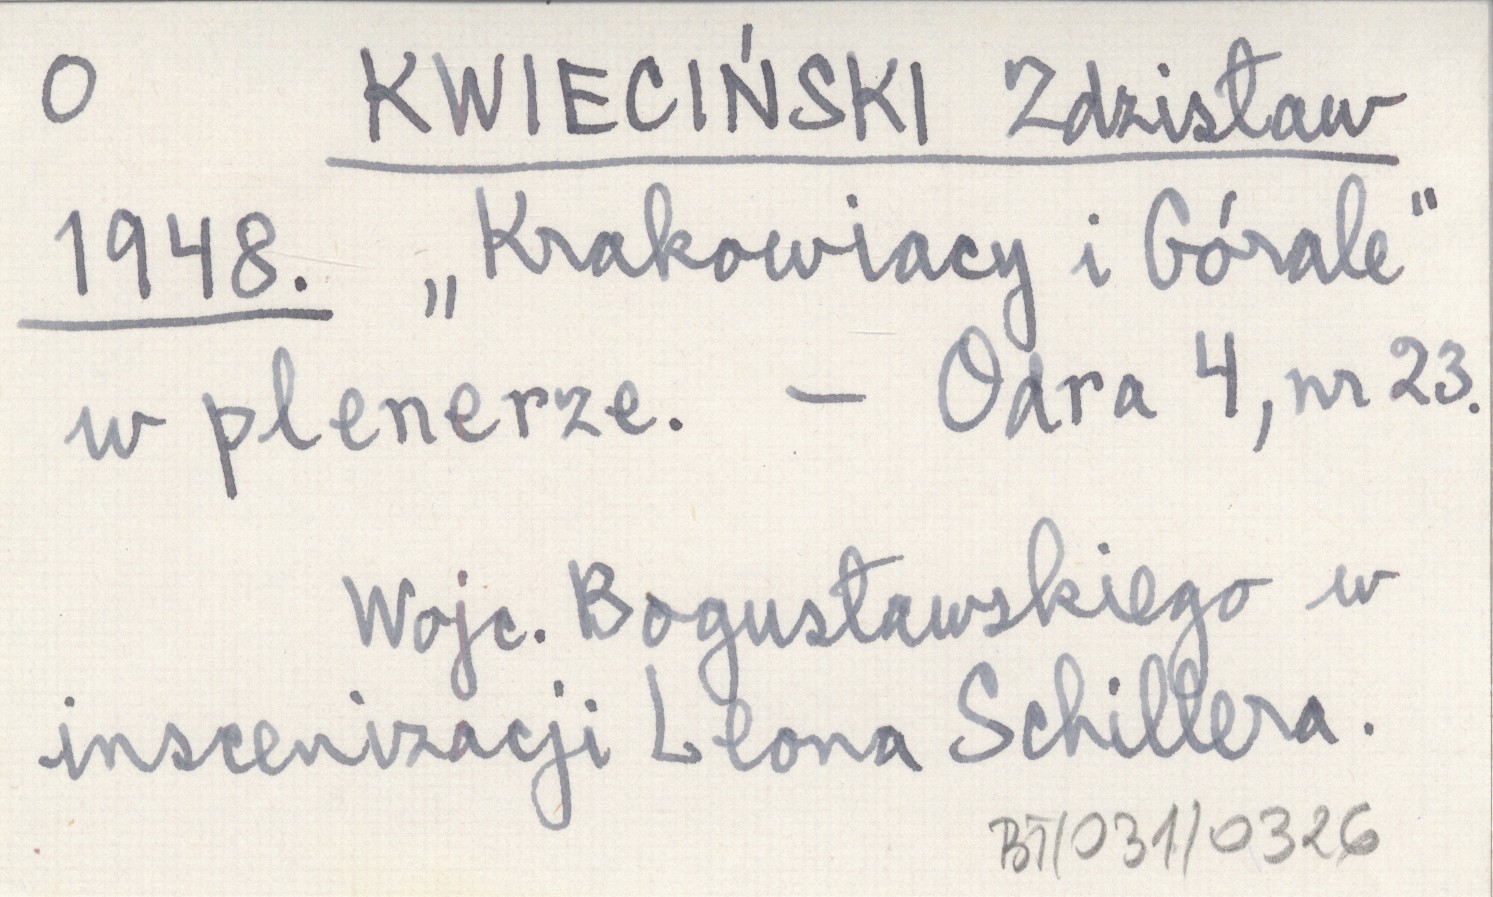 O KWIECIŃSKI Zdzisław
1948. „Krakowiacy i Górale"
w plenerze. — Odra 4, nr 23.
Wojc. Bogusławskiego w
inscenizacji Leona Schillera.
BT/031/0326